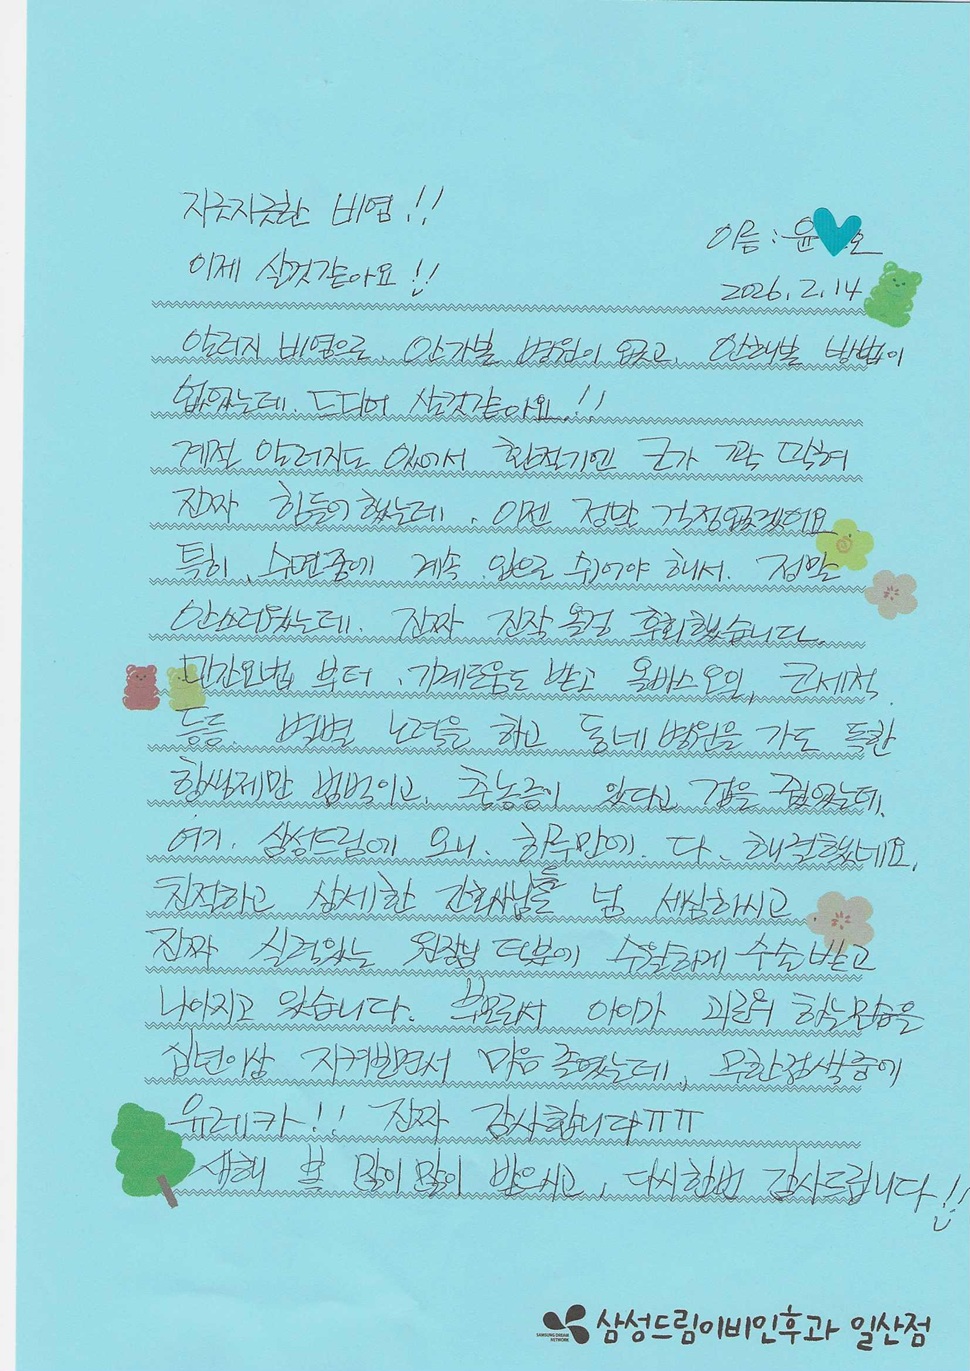 지긋지긋한 비염!!
이제 살것같아요!!
이름: 윤 호
2026. 2. 14
알러지 비염으로, 안가본 병원이 없고, 안해본 방법이
없었는데. 드디어 살것같아요!!
계절 알러지도 있어서 환절기엔 코가 꽉 막혀
진짜 힘들어했는데, 이젠 정말 걱정없겠어요
특히, 수면중에 계속 입으로 쉬어야 해서. 정말
안쓰러웠는데. 진짜 진작 올걸 후회했습니다.
민간요법 부터, 가례로움도 받고 올바스오일, 코세척
등등. 별별 노력을 하고 동네병원을 가도 독한
항생제만 범벅이고, 축농증이 있다고 겁을 줬었는데,
여기. 삼성드림에 오니. 하루만에. 다. 해결했네요.
친적하고 상세한 간호사님들 넘 세심하시고
진짜 실력있는 원장님 덕분에 수월하게 수술받고
나아지고 있습니다. 부모라서 아이가 괴로워 하는모습을
십년이상 지켜보면서 마음 졸였는데, 무한검색중에
유레카!! 진짜 감사합니다ㅠㅠ
새해 복 많이많이 받으시고, 다시한번 감사드립니다!!
SAMSUNG DREAM NETWORK
삼성드림이비인후과 일산점